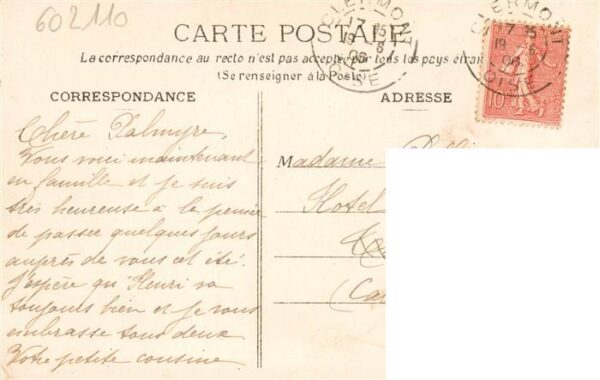 602110
CARTE POSTALE
La correspondance au recto n'est pas acceptée par tous les pays étran
(Se renseigner à la Poste)
CORRESPONDANCE
ADRESSE
CLERMONT
17 15
19 6
06
OISE
CLERMONT
7 15
19 6
06
OIS
10
Chère Palmyre,
Vous voici maintenant
en famille et je suis
très heureuse à la pensée
de passer quelques jours
auprès de vous cet été.
J'espère qu'Henri va
toujours bien et je vous
embrasse tous deux.
Votre petite cousine
Madame
Hotel
(Ca